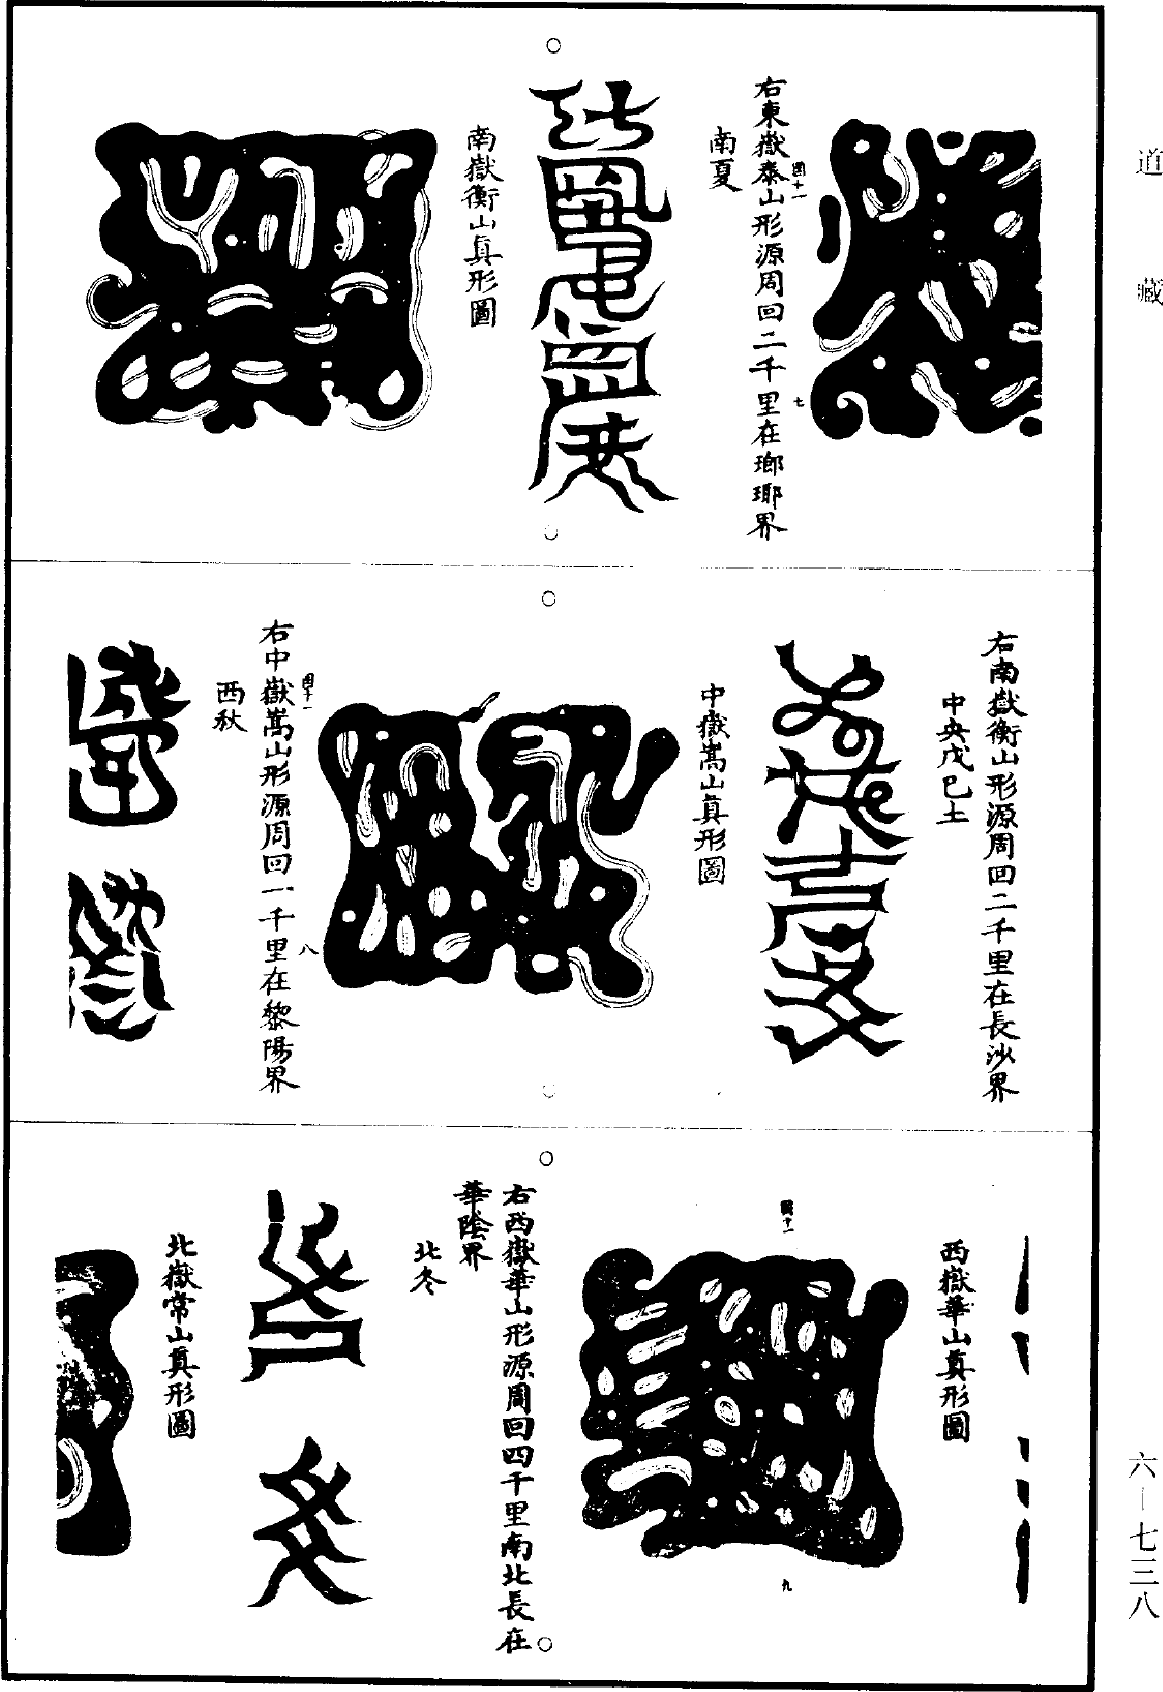 道藏
右東嶽泰山形源周回二千里在瑯瑘界
南夏
南嶽衡山真形圖
右南嶽衡山形源周回二千里在長沙界
中央戊巳土
中嶽嵩山真形圖
右中嶽嵩山形源周回一千里在黎陽界
西秋
八
西嶽華山真形圖
九
右西嶽華山形源周回四千里南北長在
華陰界
北冬
北嶽常山真形圖
六—七三八